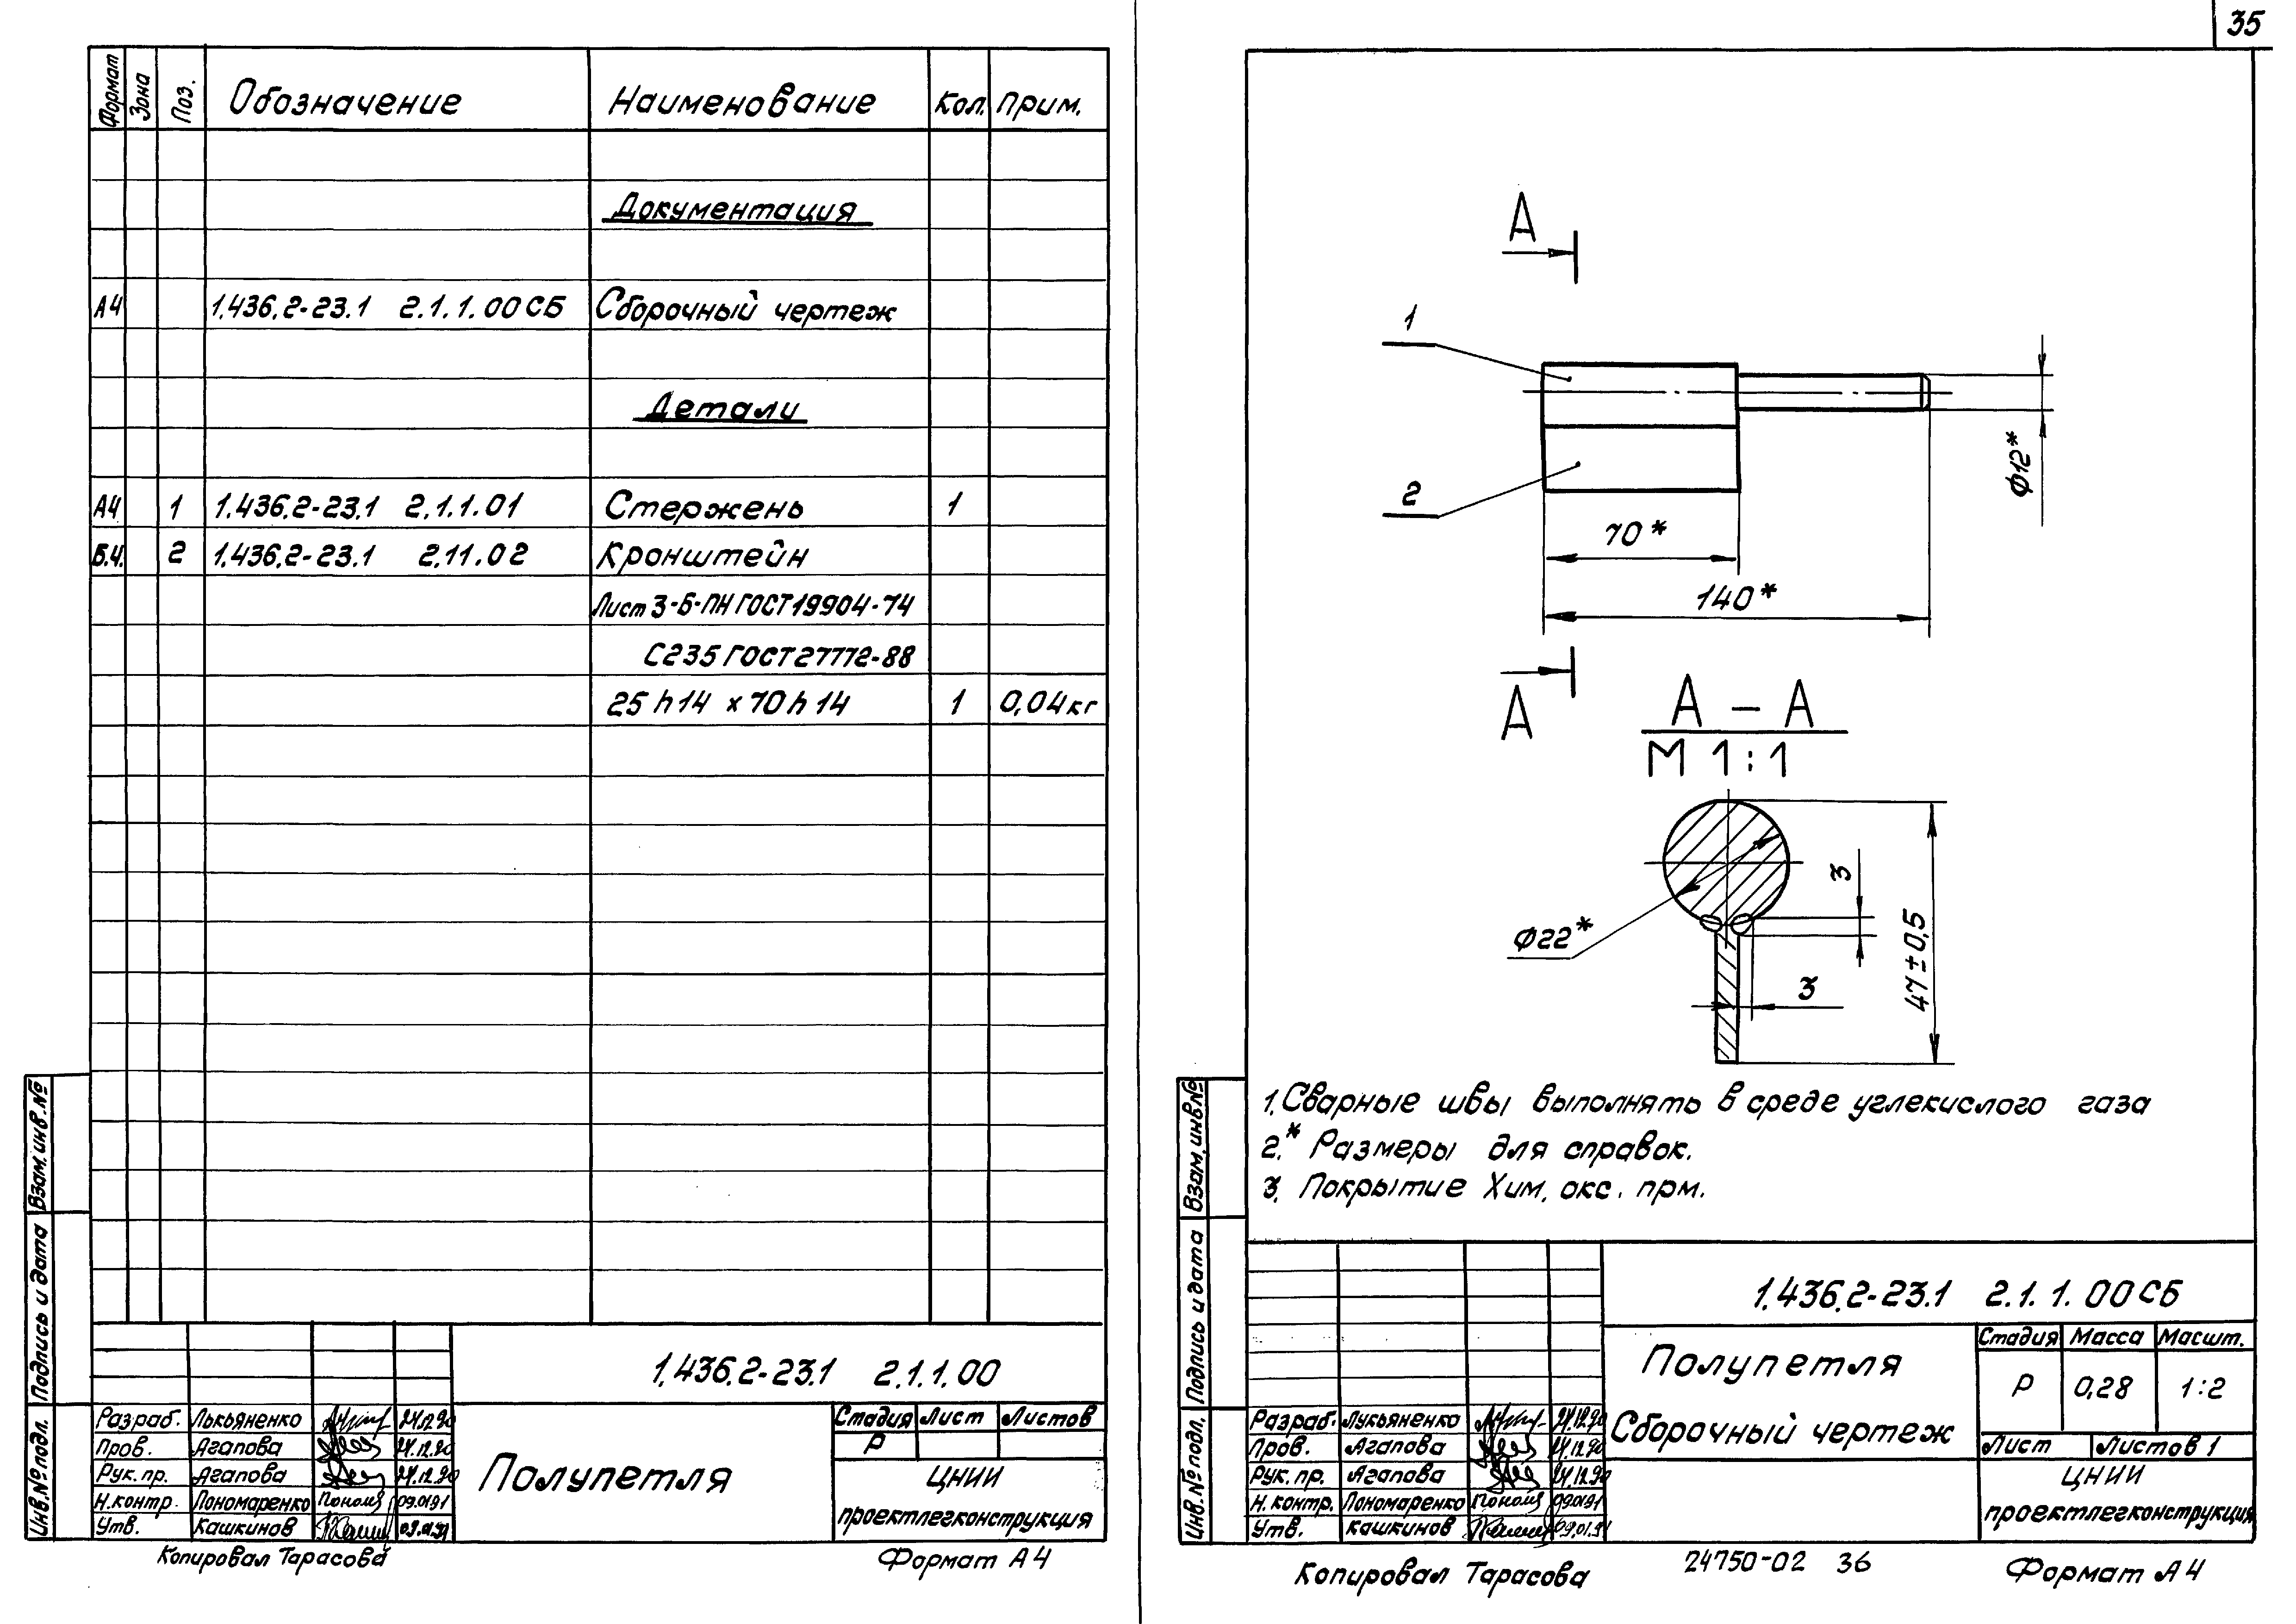 Формат Зона Поз. Обозначение Наименование Кол. Прим.
Документация
А4 1.436.2-23.1 2.1.1.00СБ Сборочный чертеж
Детали
А4 1 1.436.2-23.1 2.1.1.01 Стержень 1
Б.Ч. 2 1.436.2-23.1 2.11.02 Кронштейн
Лист 3-Б-ПН ГОСТ19904-74
С235 ГОСТ27772-88
25 h14 x 70 h 14 1 0,04кг
Взам.инв.№
Подпись и дата
Инв.№подл.
1.436.2-23.1 2.1.1.00
Разраб. Лукьяненко 24.12.90
Пров. Агапова 24.12.90
Рук.пр. Агапова 24.12.90
Н.контр. Пономаренко 09.01.91
Утв. Кашкинов 09.01.91
Полупетля
Стадия Лист Листов
Р
ЦНИИ
проектлегконструкция
Копировал Тарасова
Формат А4
35
А
1
2
70*
140*
Ф12*
А
А – А
М 1:1
Ф22*
3
3
47±0,5
1. Сварные швы выполнять в среде углекислого газа
2.* Размеры для справок.
3. Покрытие Хим. окс. прм.
Взам.инв№
Подпись и дата
Инв.№подл.
1.436.2-23.1 2.1.1.00СБ
Полупетля
Сборочный чертеж
Стадия Масса Масшт.
Р 0,28 1:2
Лист Листов 1
Разраб. Лукьяненко 24.12.90
Пров. Агапова 24.12.90
Рук.пр. Агапова 24.12.90
Н.контр. Пономаренко 09.01.91
Утв. Кашкинов 09.01.91
ЦНИИ
проектлегконструкция
Копировал Тарасова
24750-02 36
Формат А4